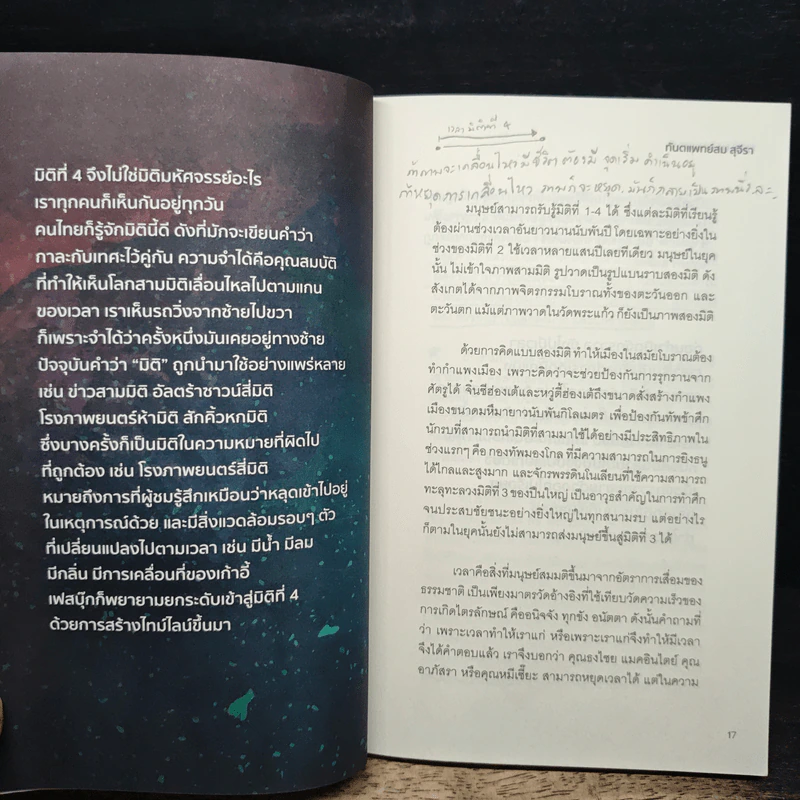 มิติที่ 4 จึงไม่ใช่มิติมหัศจรรย์อะไร
เราทุกคนก็เห็นกันอยู่ทุกวัน
คนไทยก็รู้จักมิตินี้ดี ดังที่มักจะเขียนคำว่า
กาละกับเทศะไว้คู่กัน ความจำได้คือคุณสมบัติ
ที่ทำให้เห็นโลกสามมิติเลื่อนไหลไปตามแกน
ของเวลา เราเห็นรถวิ่งจากซ้ายไปขวา
ก็เพราะจำได้ว่าครั้งหนึ่งมันเคยอยู่ทางซ้าย
ปัจจุบันคำว่า “มิติ” ถูกนำมาใช้อย่างแพร่หลาย
เช่น ข่าวสามมิติ อัลตร้าซาวน์สี่มิติ
โรงภาพยนตร์ห้ามิติ สักคิ้วหกมิติ
ซึ่งบางครั้งก็เป็นมิติในความหมายที่ผิดไป
ที่ถูกต้อง เช่น โรงภาพยนตร์สี่มิติ
หมายถึงการที่ผู้ชมรู้สึกเหมือนว่าหลุดเข้าไปอยู่
ในเหตุการณ์ด้วย และมีสิ่งแวดล้อมรอบๆ ตัว
ที่เปลี่ยนแปลงไปตามเวลา เช่น มีน้ำ มีลม
มีกลิ่น มีการเคลื่อนที่ของเก้าอี้
เฟสบุ๊กก็พยายามยกระดับเข้าสู่มิติที่ 4
ด้วยการสร้างไทม์ไลน์ขึ้นมา
เวลา มิติที่ 4
ทันตแพทย์สม สุจีรา
ถ้าภาพจะเคลื่อนไหวมีชีวิต ต้องมี จุดเริ่ม ดำเนินอยู่
ถ้าหยุดการเคลื่อนไหว ภาพก็จะหยุด มันก็กลายเป็นภาพนิ่ง
มนุษย์สามารถรับรู้มิติที่ 1-4 ได้ ซึ่งแต่ละมิติที่เรียนรู้
ต้องผ่านช่วงเวลาอันยาวนานนับพันปี โดยเฉพาะอย่างยิ่งใน
ช่วงของมิติที่ 2 ใช้เวลาหลายแสนปีเลยทีเดียว มนุษย์ในยุค
นั้น ไม่เข้าใจภาพสามมิติ รูปวาดเป็นรูปแบนราบสองมิติ ดัง
สังเกตได้จากภาพจิตรกรรมโบราณทั้งของตะวันออก และ
ตะวันตก แม้แต่ภาพวาดในวัดพระแก้ว ก็ยังเป็นภาพสองมิติ
ด้วยการคิดแบบสองมิติ ทำให้เมืองในสมัยโบราณต้อง
ทำกำแพงเมือง เพราะคิดว่าจะช่วยป้องกันการรุกรานจาก
ศัตรูได้ จิ๋นซีฮ่องเต้และหวู่ตี้ฮ่องเต้ถึงขนาดสั่งสร้างกำแพง
เมืองขนาดมหึมายาวนับพันกิโลเมตร เพื่อป้องกันทัพข้าศึก
นักรบที่สามารถนำมิติที่สามมาใช้ได้อย่างมีประสิทธิภาพใน
ช่วงแรกๆ คือ กองทัพมองโกล ที่มีความสามารถในการยิงธนู
ได้ไกลและสูงมาก และจักรพรรดินโปเลียนที่ใช้ความสามารถ
ทะลุทะลวงมิติที่ 3 ของปืนใหญ่ เป็นอาวุธสำคัญในการทำศึก
จนประสบชัยชนะอย่างยิ่งใหญ่ในทุกสนามรบ แต่อย่างไร
ก็ตามในยุคนั้นยังไม่สามารถส่งมนุษย์ขึ้นสู่มิติที่ 3 ได้
เวลาคือสิ่งที่มนุษย์สมมติขึ้นมาจากอัตราการเสื่อมของ
ธรรมชาติ เป็นเพียงมาตรวัดอ้างอิงที่ใช้เทียบวัดความเร็วของ
การเกิดไตรลักษณ์ คืออนิจจัง ทุกขัง อนัตตา ดังนั้นคำถามที่
ว่า เพราะเวลาทำให้เราแก่ หรือเพราะเราแก่จึงทำให้มีเวลา
จึงได้คำตอบแล้ว เราจึงบอกว่า คุณธงไชย แมคอินไตย์ คุณ
อาภัสรา หรือคุณหมีเซี๊ยะ สามารถหยุดเวลาได้ แต่ในความ
17